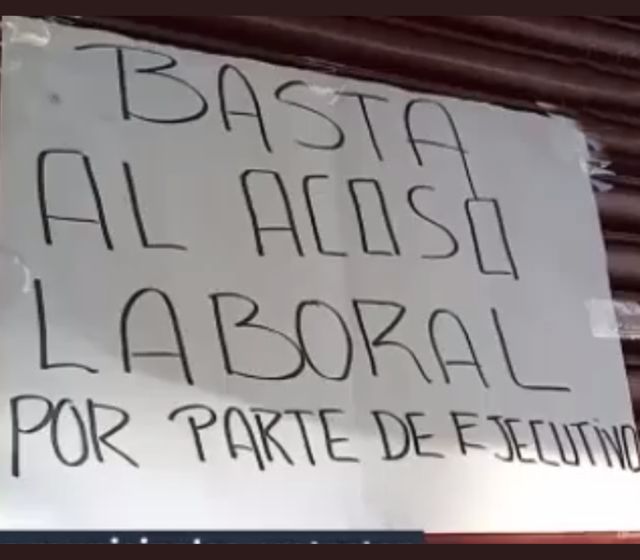 BASTA
AL ACOSO
LABORAL
POR PARTE DE EJECUTIVO